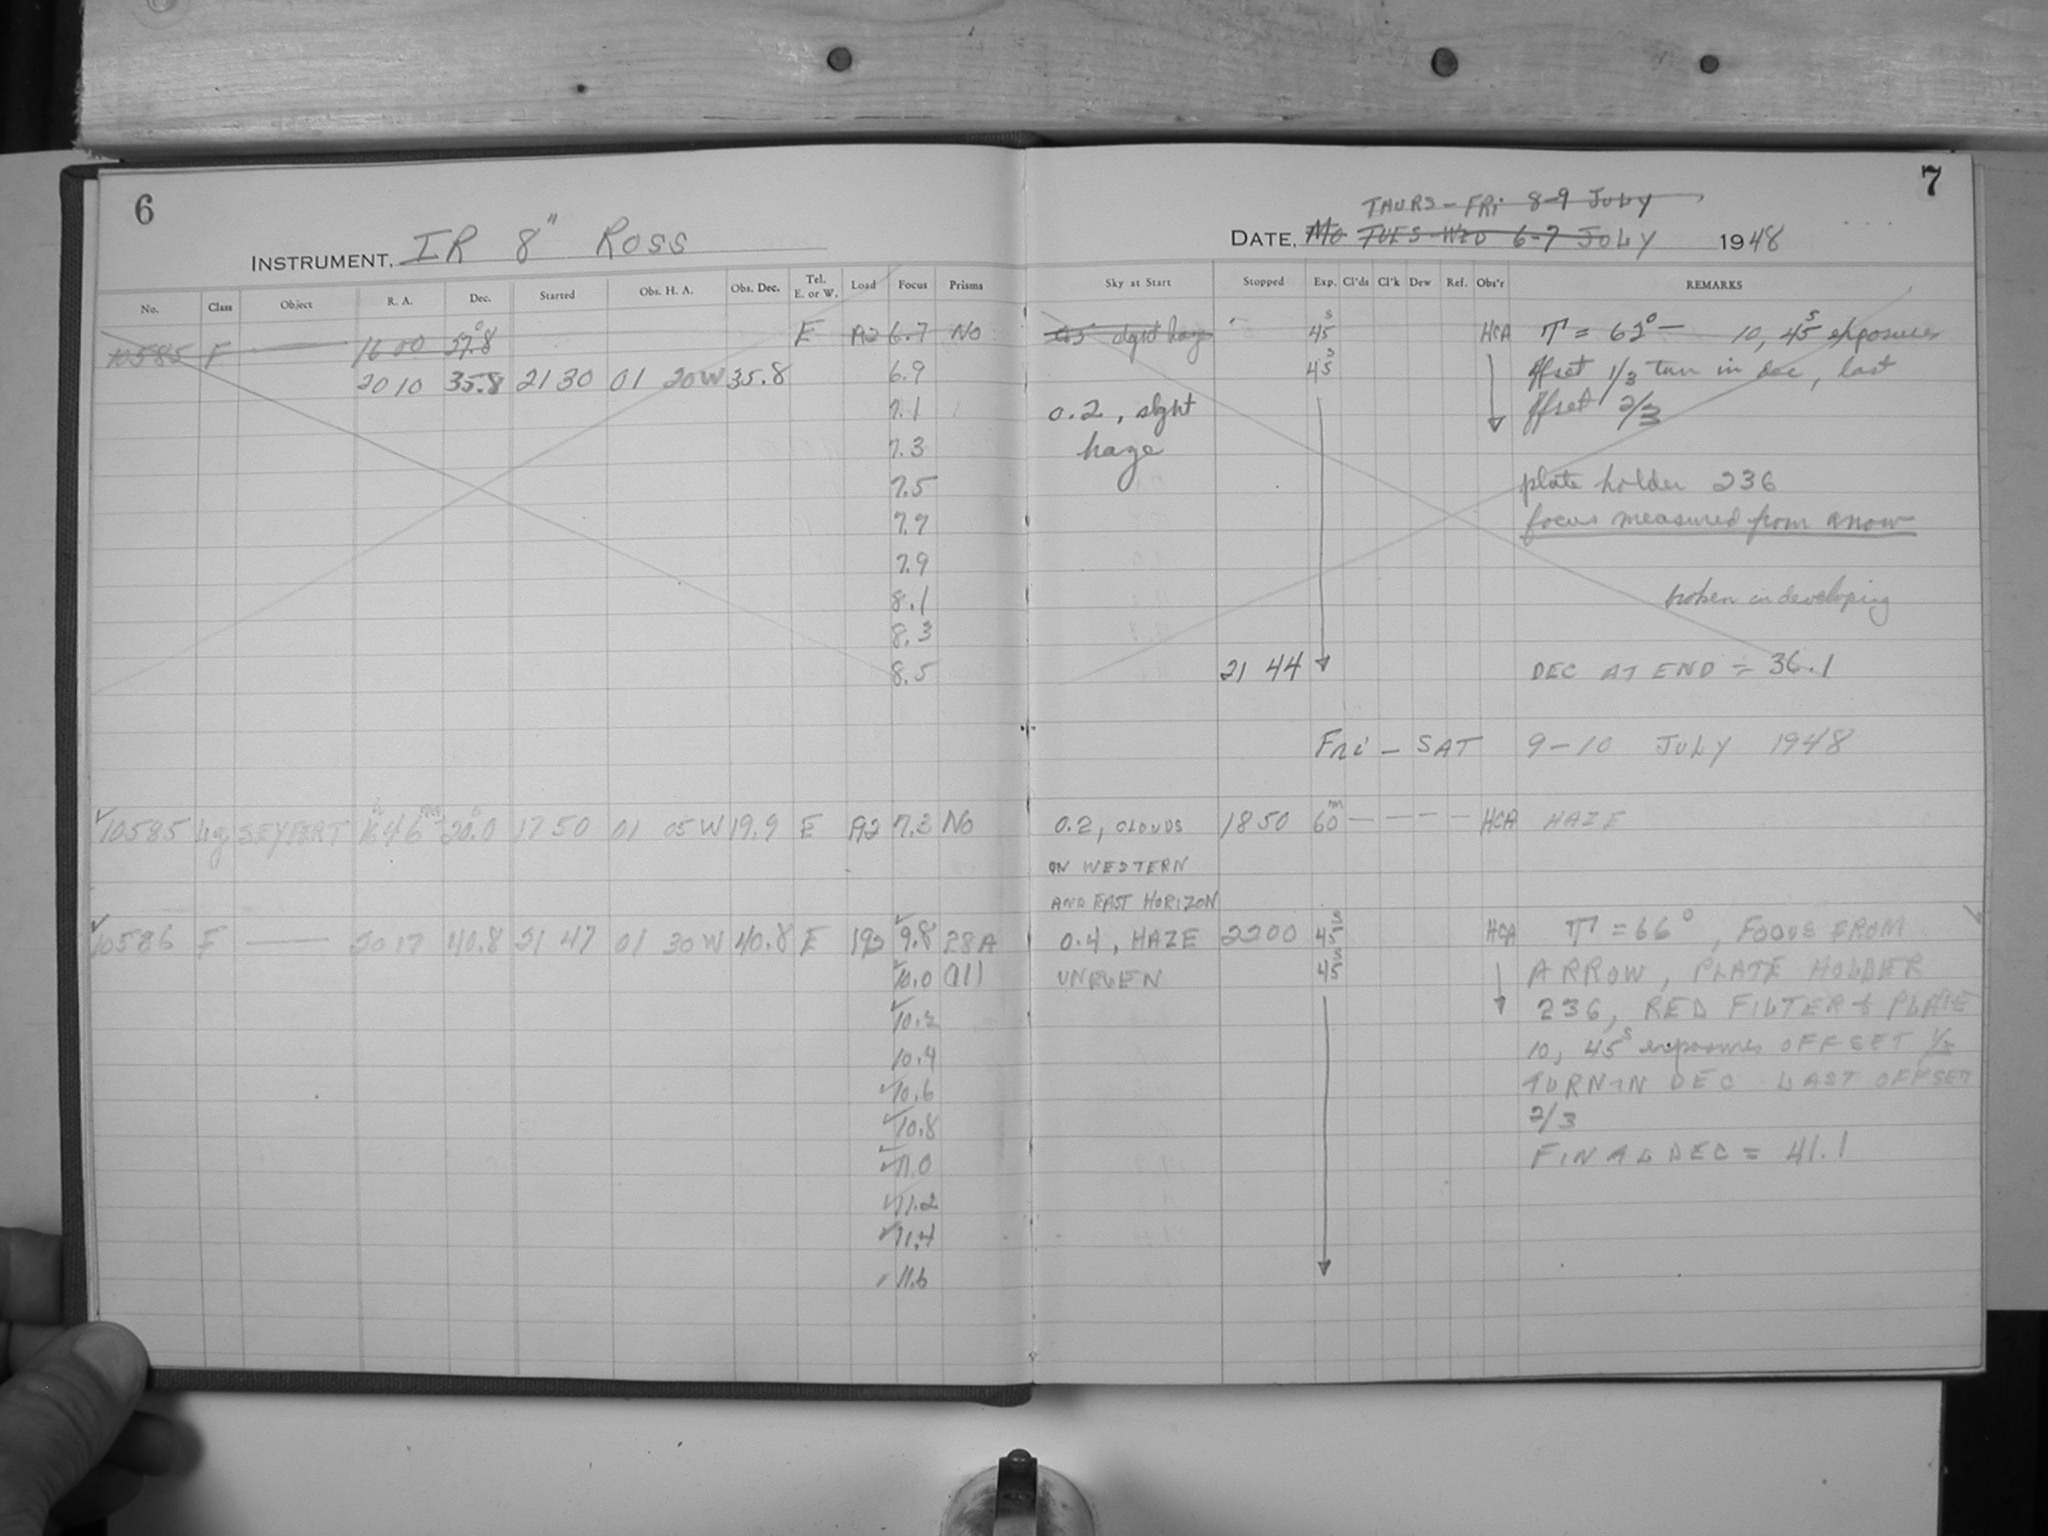 6
INSTRUMENT, IR 8" ROSS
No. Class Object R. A. Dec. Started Obs. H. A. Obs. Dec. Tel. E. or W. Load Focus Prisms
10585 F — 16 00 37.8° E A2 6.7 No
20 10 35.8 21 30 01 20W 35.8 6.9
7.1
7.3
7.5
7.7
7.9
8.1
8.3
8.5
10585 SEYFERT 20.0 17 50 01 05W 19.9 E A2 7.3 No
10586 F — 20 17 40.8 21 47 01 30W 40.8 E 9.8 28A
10.0 (11)
10.2
10.4
10.6
10.8
11.0
11.2
11.4
11.6
7
THURS – FRI 8-9 JULY
DATE, Mo TUES-WED 6-7 JULY 1948
Sky at Start Stopped Exp. Cl'ds Cl'k Dew Ref. Obs'r REMARKS
slght haze 45s HCA T = 62° — 10, 45s exposures
45s offset 1/3 turn in dec, last
0.2, slght offset 2/3
haze
plate holder 236
focus measured from arrow
broken in developing
21 44 DEC AT END = 36.1
Fri – SAT 9–10 JULY 1948
0.2, CLOUDS 18 50 60m — – – – HCA HAZE
ON WESTERN
AND EAST HORIZON
0.4, HAZE 2200 45s HCA T = 66°, FOCUS FROM
UNEVEN 45s ARROW, PLATE HOLDER
236, RED FILTER & PLATE
10, 45s exposures OFFSET 1/3
TURN IN DEC LAST OFFSET
2/3
FINAL DEC = 41.1